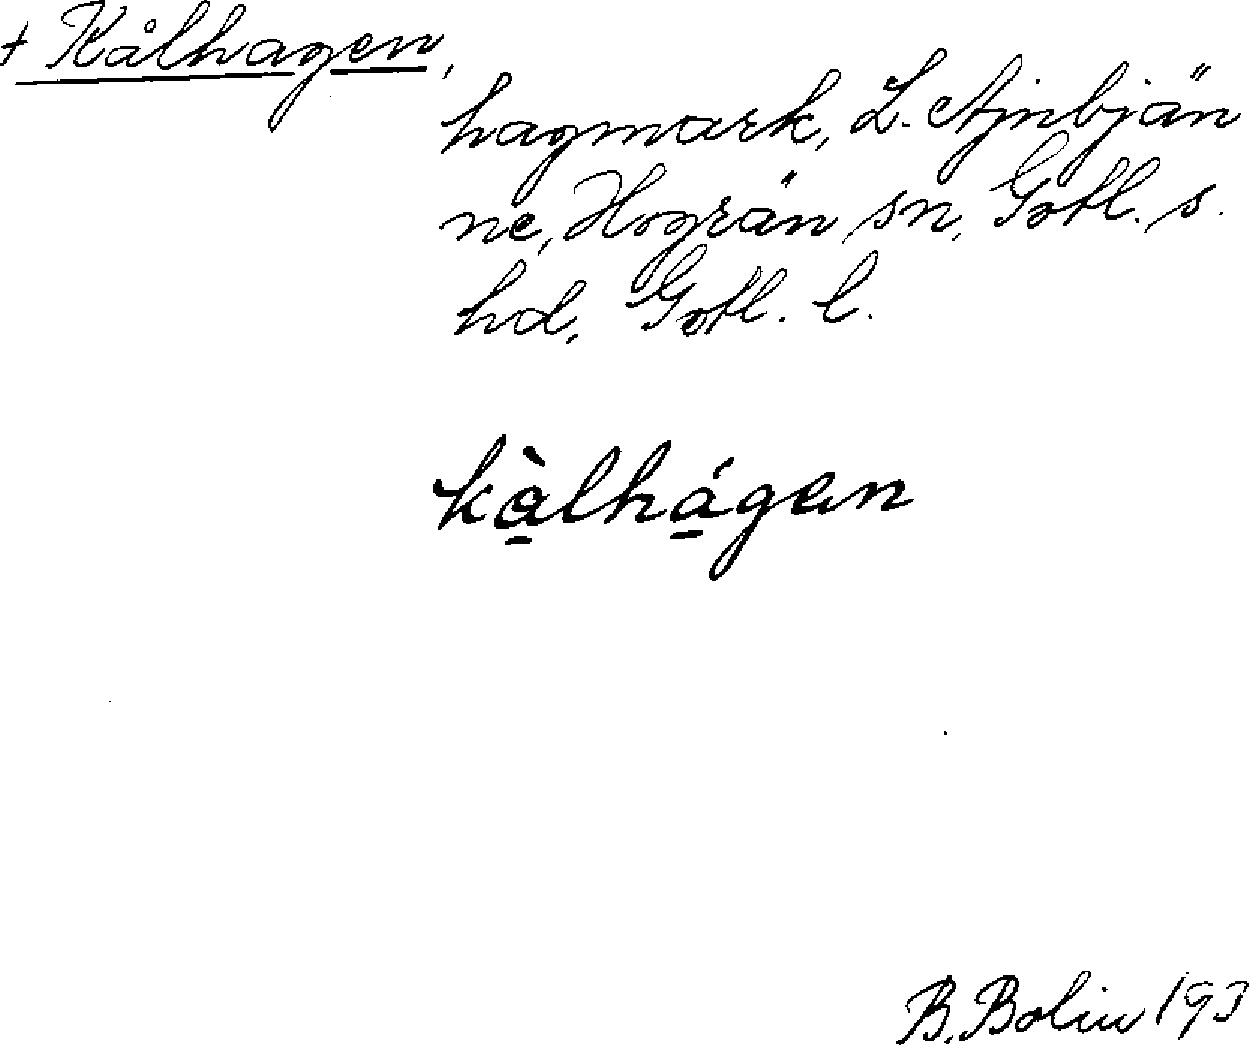 + Kålhagen,
hagmark, L. Ajnbjän
ne, Hogrän sn, Gotl. s.
hd, Gotl. l.
kàlhágen
B. Bolin 193